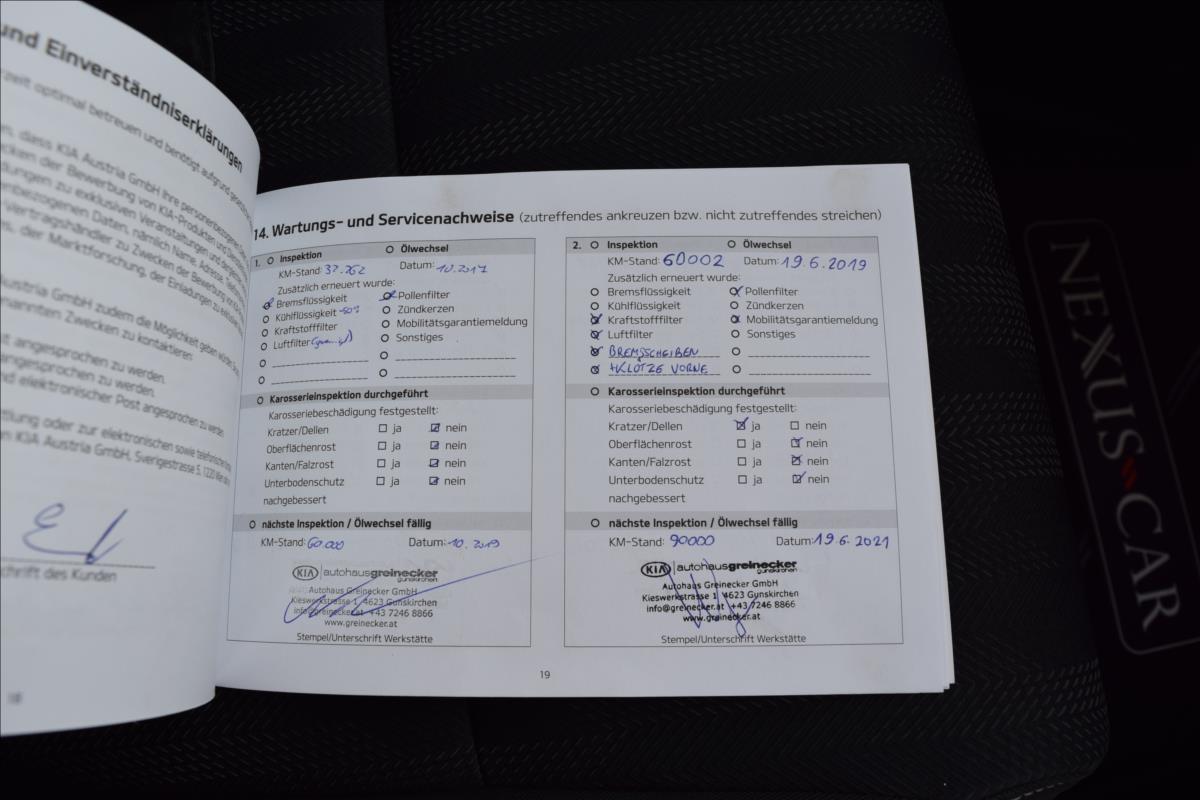 und Einverständniserklärungen
rzeit optimal betreuen und benötigt aufgrund gesetzlicher
en, dass KIA Austria GmbH Ihre personenbezogenen
ecken der Bewerbung von KIA-Produkten und Dienstleist
dungen zu exklusiven Veranstaltungen und dergleichen
enbezogenen Daten, nämlich Name, Adresse, Telefon
-Vertragshändler zu Zwecken der Bewerbung von
ns, der Marktforschung, der Einladungen zu exklusiven
Austria GmbH zudem die Möglichkeit geben würden, Sie
enannten Zwecken zu kontaktieren:
t angesprochen zu werden.
angesprochen zu werden.
nd elektronischer Post angesprochen zu werden.
ttlung oder zur elektronischen sowie telefonischen
n KIA Austria GmbH, Sverigestrasse 5, 1220 Wien
chrift des Kunden
18
14. Wartungs- und Servicenachweise (zutreffendes ankreuzen bzw. nicht zutreffendes streichen)
1. Inspektion Ölwechsel
KM-Stand: 37.262 Datum: 10.2017
Zusätzlich erneuert wurde:
Bremsflüssigkeit Pollenfilter
Kühlflüssigkeit -50% Zündkerzen
Kraftstofffilter Mobilitätsgarantiemeldung
Luftfilter Sonstiges
Karosserieinspektion durchgeführt
Karosseriebeschädigung festgestellt:
Kratzer/Dellen ja nein
Oberflächenrost ja nein
Kanten/Falzrost ja nein
Unterbodenschutz ja nein
nachgebessert
nächste Inspektion / Ölwechsel fällig
KM-Stand: 60.000 Datum: 10.2019
KIA autohausgreinecker
gunskirchen
Autohaus Greinecker GmbH
Kieswerkstrasse 1, 4623 Gunskirchen
info@greinecker.at +43 7246 8866
www.greinecker.at
Stempel/Unterschrift Werkstätte
2. Inspektion Ölwechsel
KM-Stand: 60002 Datum: 19.6.2019
Zusätzlich erneuert wurde:
Bremsflüssigkeit Pollenfilter
Kühlflüssigkeit Zündkerzen
Kraftstofffilter Mobilitätsgarantiemeldung
Luftfilter Sonstiges
BREMSSCHEIBEN
+KLÖTZE VORNE
Karosserieinspektion durchgeführt
Karosseriebeschädigung festgestellt:
Kratzer/Dellen ja nein
Oberflächenrost ja nein
Kanten/Falzrost ja nein
Unterbodenschutz ja nein
nachgebessert
nächste Inspektion / Ölwechsel fällig
KM-Stand: 90000 Datum: 19.6.2021
KIA autohausgreinecker
gunskirchen
Autohaus Greinecker GmbH
Kieswerkstrasse 1, 4623 Gunskirchen
info@greinecker.at +43 7246 8866
www.greinecker.at
Stempel/Unterschrift Werkstätte
19
NEXXUS CAR